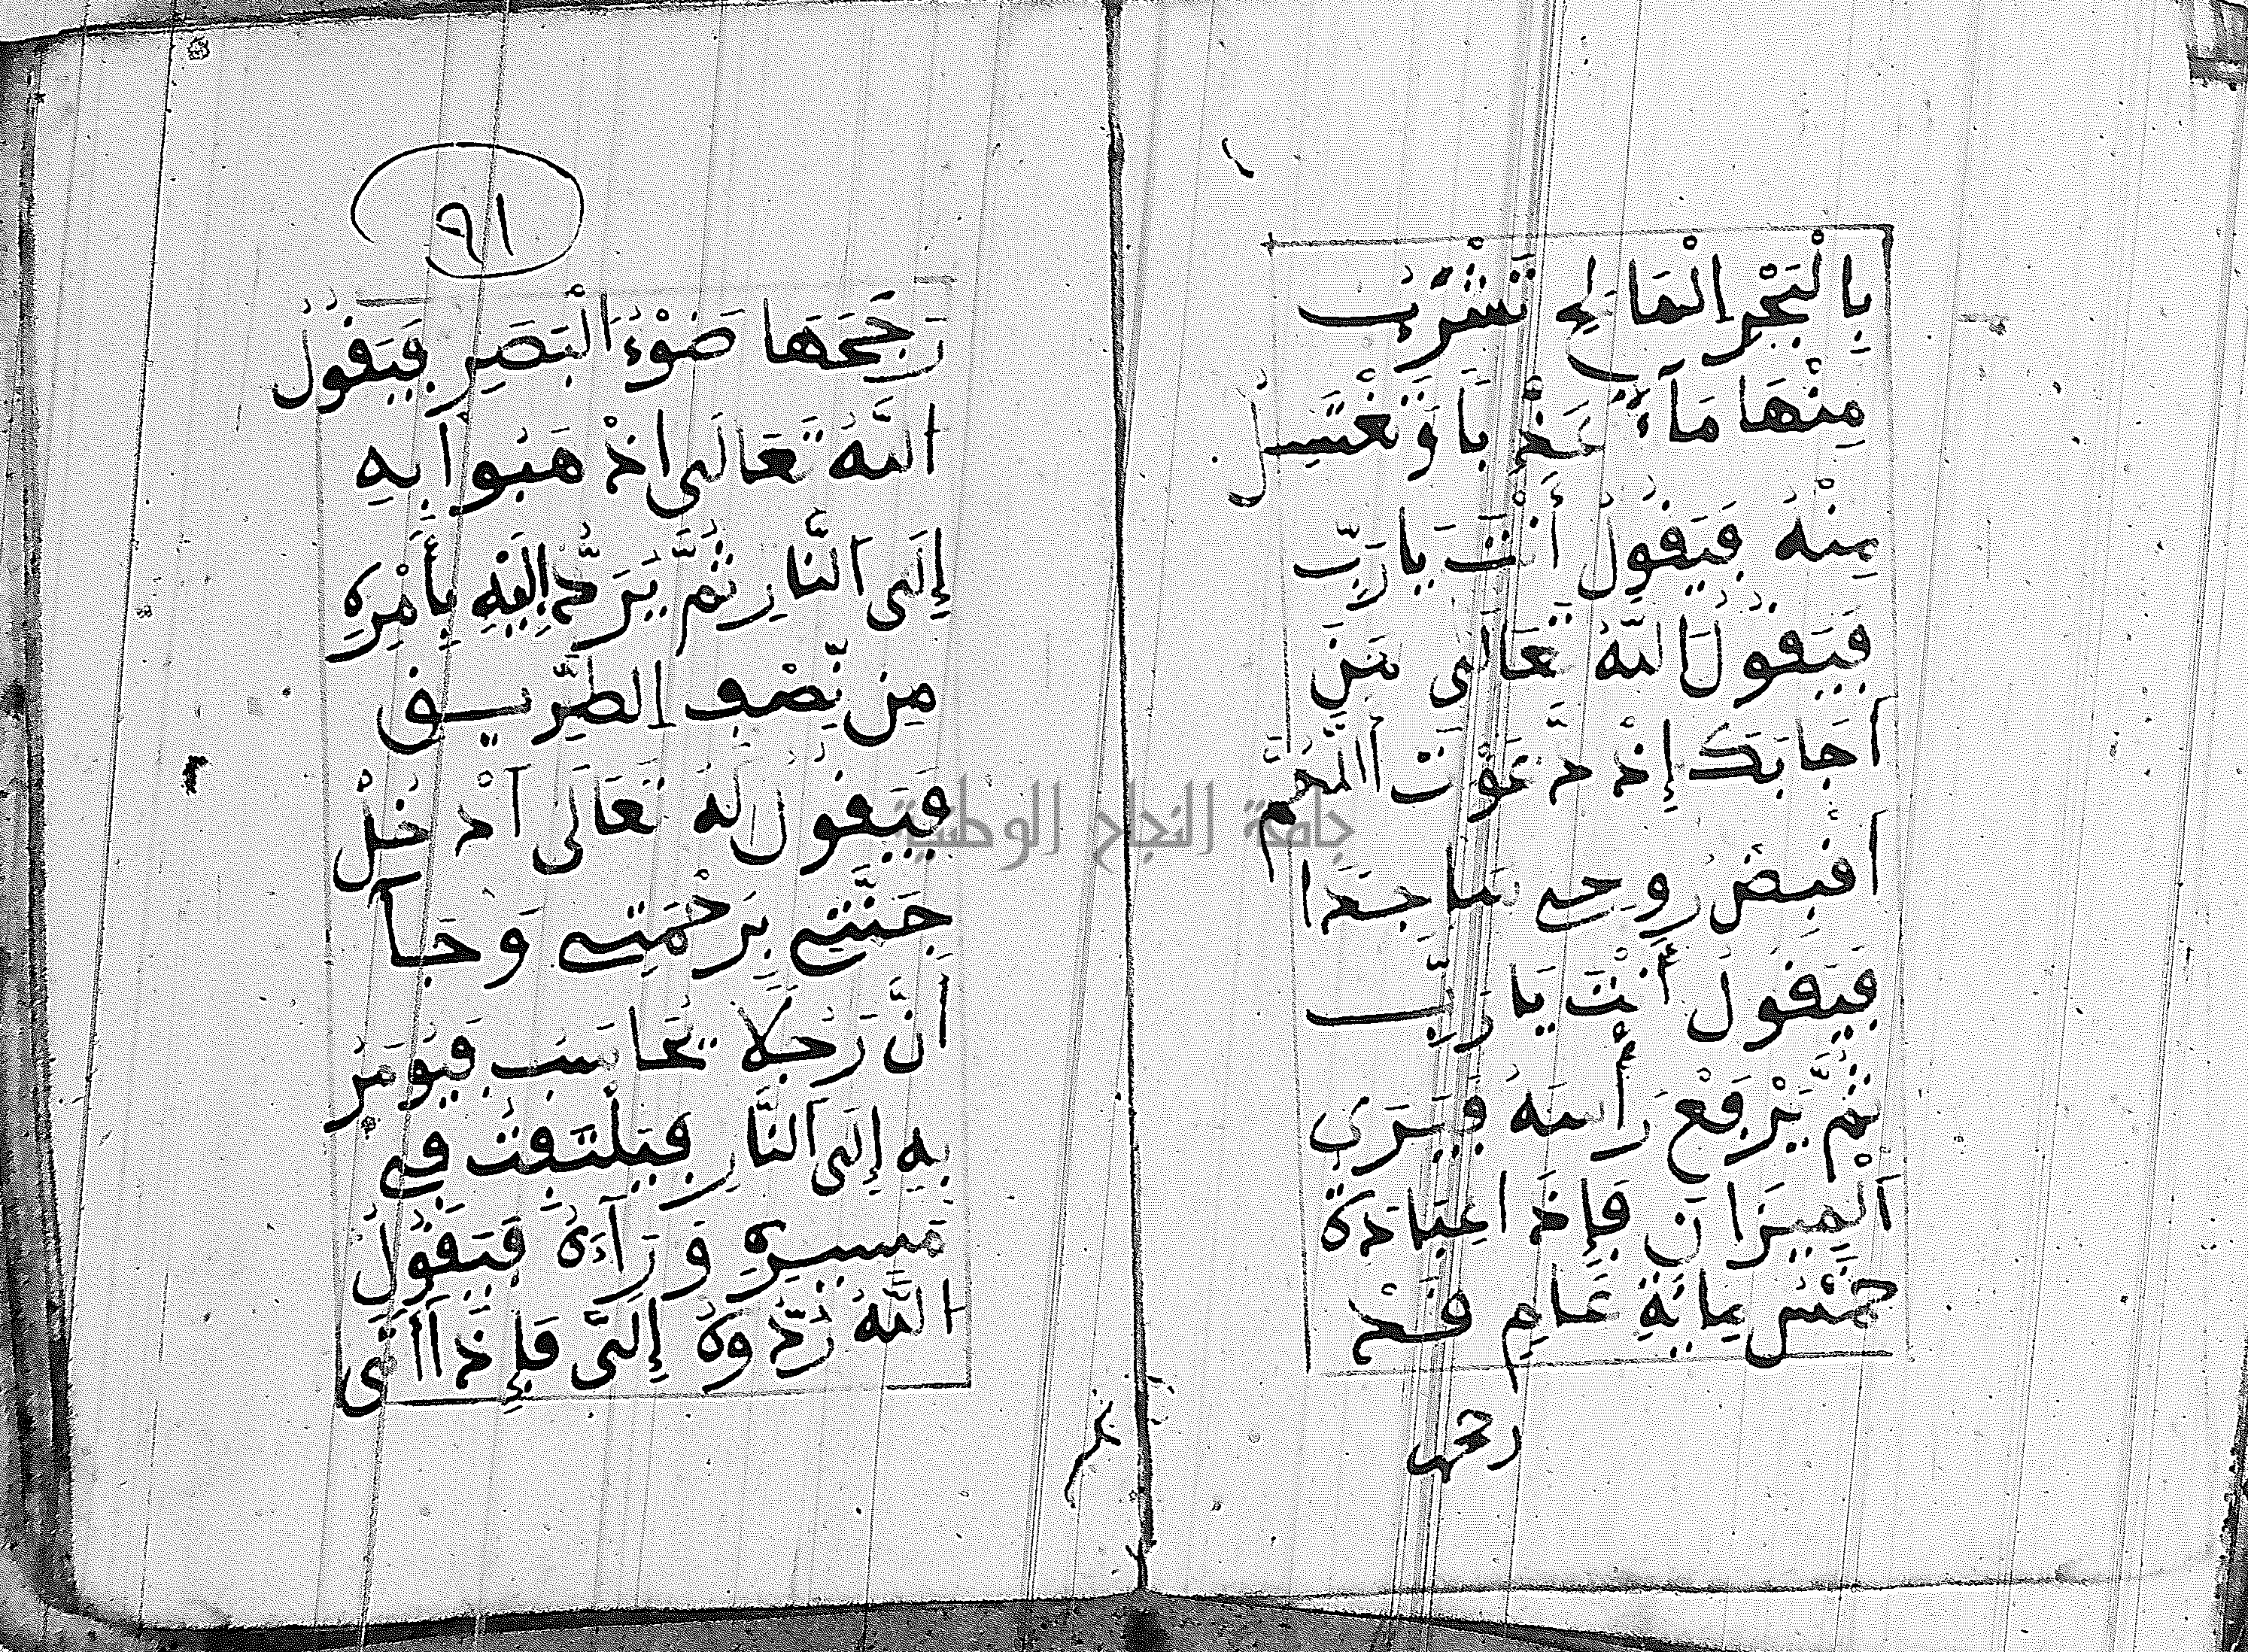 بِالْبَحْرِ الْمَالِحِ تَشْرَبُ
مِنْهَا مَآءً عَذْبَا وَتَغْتَسِلُ
مِنْهُ فَيَقُولُ أَنْتَ يَارَبِّ
فَيَقُولُ اللّهُ تَعَالَى مَنَ
اَجَابَكَ إِذْ دَعَوْتَ اَللَّهُمَّ
اَقْبِضْ رُوحِي سَاجِدًا
فَيَقُولُ أَنْتَ يَارَبِّ
ثُمَّ يَرْفَعُ رَأْسَهُ فَيَرَى
اَلْمِيزَانَ فَإِذَا عِبَادَةُ
خَمْسُ مِايَةِ عَامٍ قَدْ
رجحها
٩١
رَجَحَهَا ضَوْءُ الْبَصَرِ فَيَقُولُ
اللَّهُ تَعَالَى اذْهَبُوا بِهِ
إِلَى النَّارِ ثُمَّ يَرُدُّ إِلَيْهِ بِأَمْرِهِ
مِن نِّصْفِ الطَّرِيقِ
فَيَقُولُ لَهُ تَعَالَى اَدْخُلْ
جَنَّتِي بِرَحْمَتِي وَجَآ
اَنَّ رَجُلًا يُحَاسَبُ فَيُومَرُ
بِهِ إِلَى النَّارِ فَيَلْتَفِتُ فِي
مَسِيرِهِ وَرَآءَهُ فَيَقُولُ
اللَّهُ رُدُّوهُ إِلَيَّ فَإِذَآ أَتَى
جامعة النجاح الوطنية